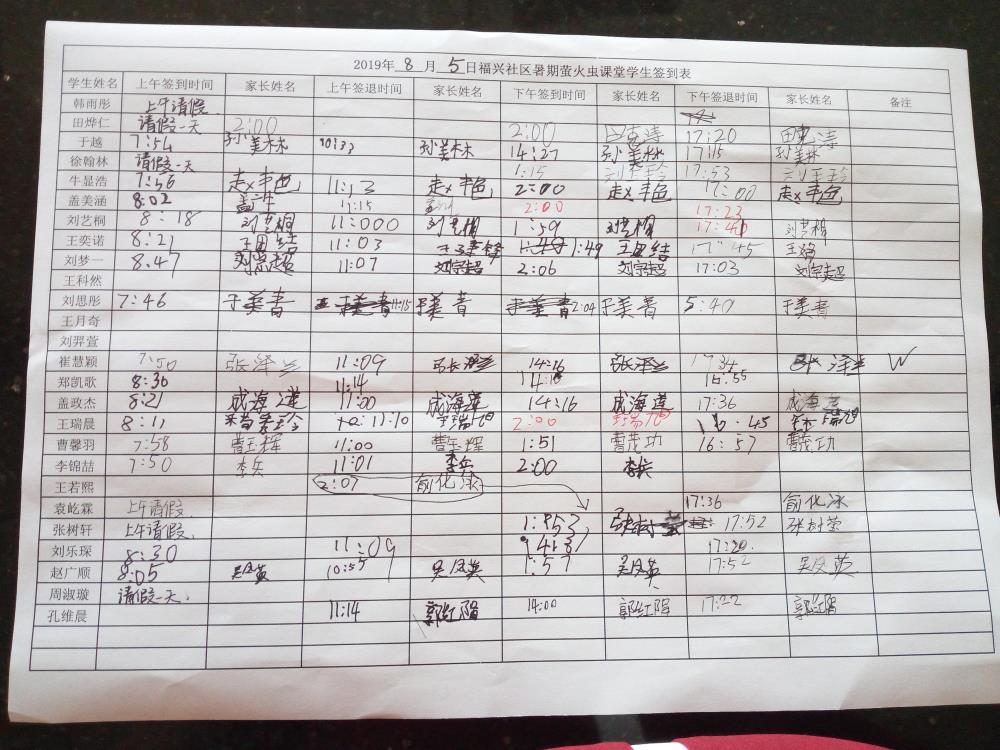 2019年 8 月 5 日福兴社区暑期萤火虫课堂学生签到表
学生姓名 上午签到时间 家长姓名 上午签退时间 家长姓名 下午签到时间 家长姓名 下午签退时间 家长姓名 备注
韩雨彤 上午请假
田烨仁 请假一天 2:00 2:00 17:20
于越 7:54 孙美林 孙美林 14:27 孙美林 17:15 孙美林
徐翰林 请假一天 1:15 17:53
牛显浩 7:56 赵丰色 11:13 赵丰色 2:00 赵丰色 17:00 赵丰色
盖美涵 8:02 11:15 2:00 17:23
刘艺桐 8:18 刘艺桐 11:000 刘艺桐 1:59 刘艺桐 17:40 刘艺桐
王奕诺 8:21 11:03 1:49 17:45
刘梦一 8.47 刘宗超 11:07 刘宗超 2:06 刘宗超 17:03 刘宗超
王科然
刘思彤 7:46 于美青 11:15 于美青 2:04 于美青 5:40 于美青
王月奇
刘羿萱
崔慧颖 7:50 张泽兰 11:09 张泽兰 14:16 张泽兰 17:34 张泽兰
郑凯歌 8:30 11:14 14:10 16:55
盖政杰 8:21 成海莲 11:00 成海莲 14:16 成海莲 17:36 成海莲
王瑞晨 8:11 11:10 2:00 16:45
曹馨羽 7:58 曹玉辉 11:00 曹玉辉 1:51 曹茂功 16:57 曹茂功
李锦喆 7:50 李兵 11:01 李兵 2:00 李兵
王若熙 2:07 俞化冰
袁屹霖 上午请假 17:36 俞化冰
张树轩 上午请假 1:53 17:52
刘乐琛 8:30 11:09 17:20
赵广顺 8:05 吴凤英 10:55 吴凤英 1:57 吴凤英 17:52 吴凤英
周淑璇 请假一天
孔维晨 11:14 郭红娟 14:00 郭红娟 17:22 郭红娟